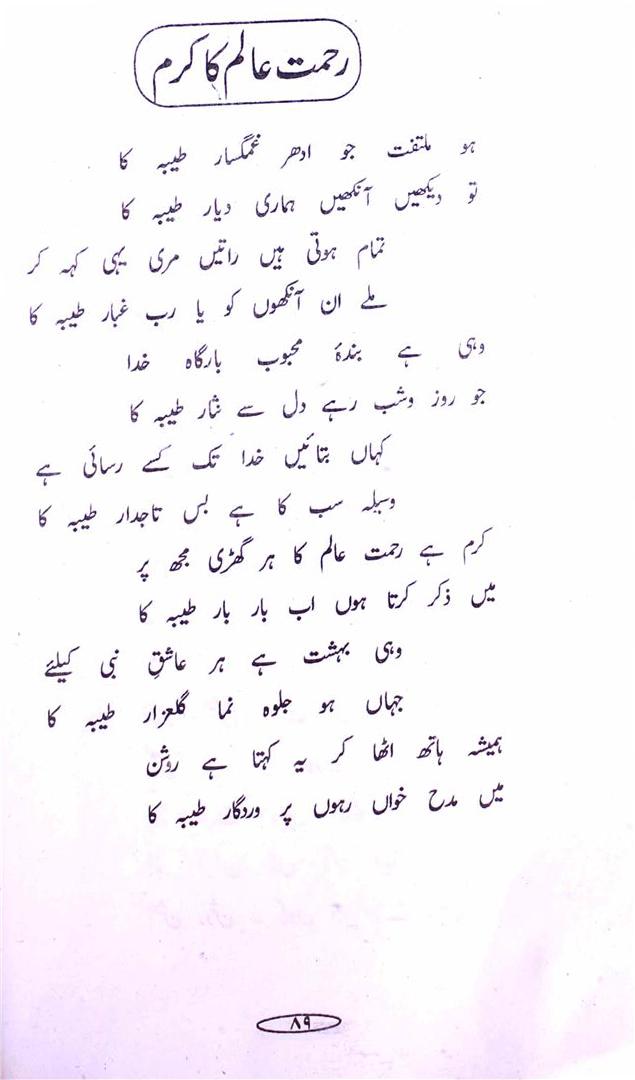 رحمت عالم کا کرم
ہو ملتفت جو ادھر غمگسار طیبہ کا
تو دیکھیں آنکھیں ہماری دیار طیبہ کا
تمام ہوتی ہیں راتیں مری یہی کہہ کر
ملے ان آنکھوں کو یا رب غبار طیبہ کا
وہی ہے بندۂ محبوب بارگاہ خدا
جو روز وشب رہے دل سے نثار طیبہ کا
کہاں بتائیں خدا تک کسے رسائی ہے
وسیلہ سب کا ہے بس تاجدار طیبہ کا
کرم ہے رحمت عالم کا ہر گھڑی مجھ پر
میں ذکر کرتا ہوں اب بار بار طیبہ کا
وہی بہشت ہے ہر عاشقِ نبی کیلئے
جہاں ہو جلوہ نما گلعزار طیبہ کا
ہمیشہ ہاتھ اٹھا کر یہ کہتا ہے روشن
میں مدح خواں رہوں پر وردگار طیبہ کا
۸۹